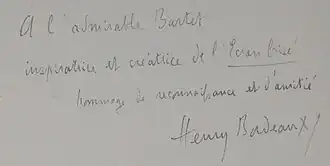 A l'admirable Bartet
inspiratrice et créatrice de l'Ecran brisé
hommage de reconnaissance et d'amitié
Henry Bordeaux